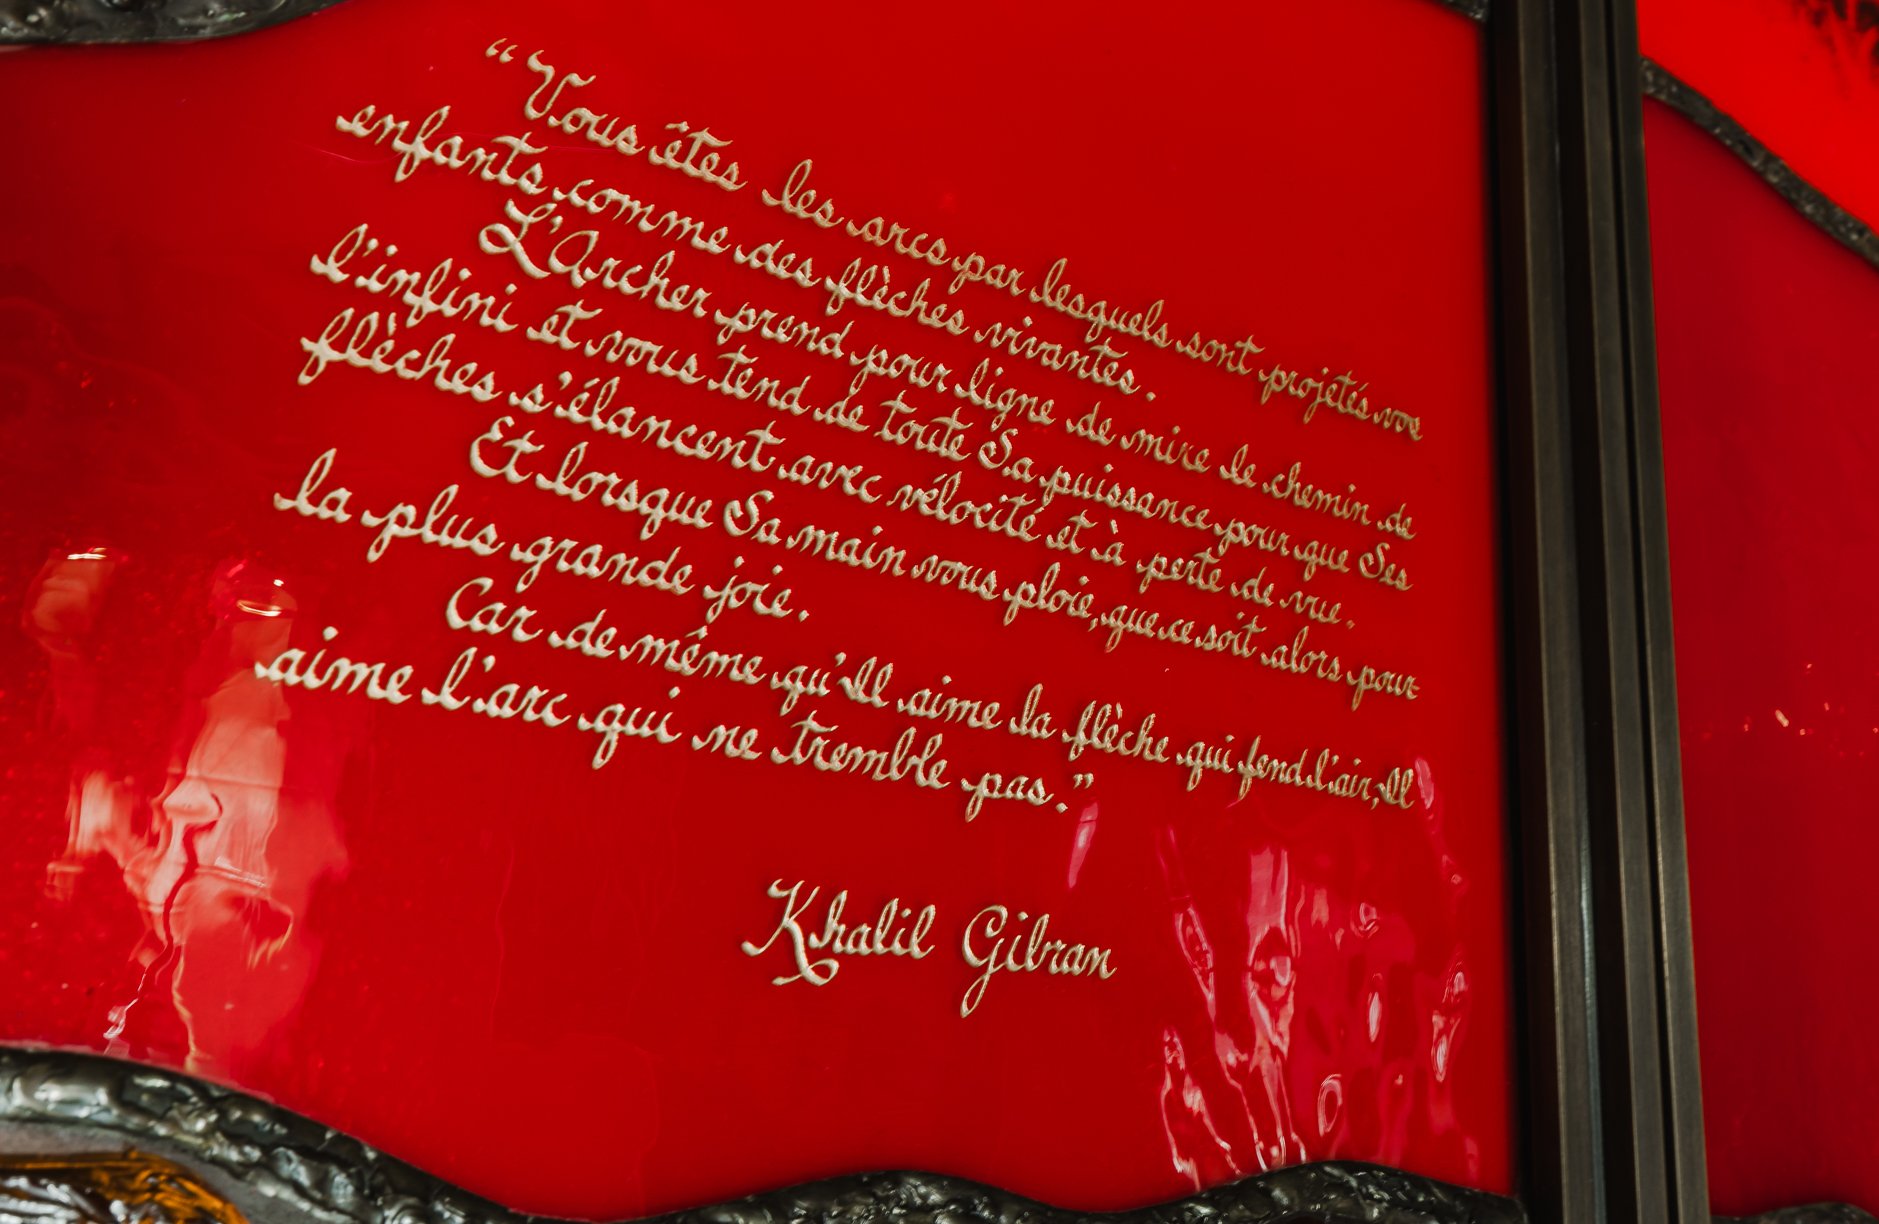 “Vous êtes les arcs par lesquels sont projetés vos
enfants comme des flèches vivantes.
L'Archer prend pour ligne de mire le chemin de
l'infini et vous tend de toute Sa puissance pour que Ses
flèches s'élancent avec vélocité et à perte de vue.
Et lorsque Sa main vous ploie, que ce soit alors pour
la plus grande joie.
Car de même qu'Il aime la flèche qui fend l'air, Il
aime l'arc qui ne tremble pas.”
Khalil Gibran